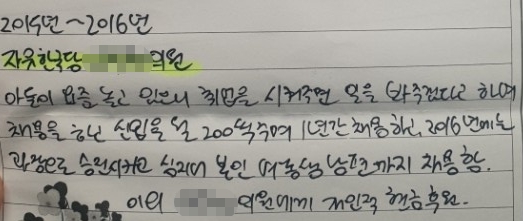 2015년~2016년
자유한국당 의원
아들이 요즘 놀고 있으니 취업을 시켜주면 일을 봐주겠다고 하여
채용을 하고 신입을 월 200씩주며 1년간 채용하고, 2016년에는
과장으로 승진시키고 심지어 본인 여동생 남편까지 채용함.
이외 의원에게 개인적 현금후원.